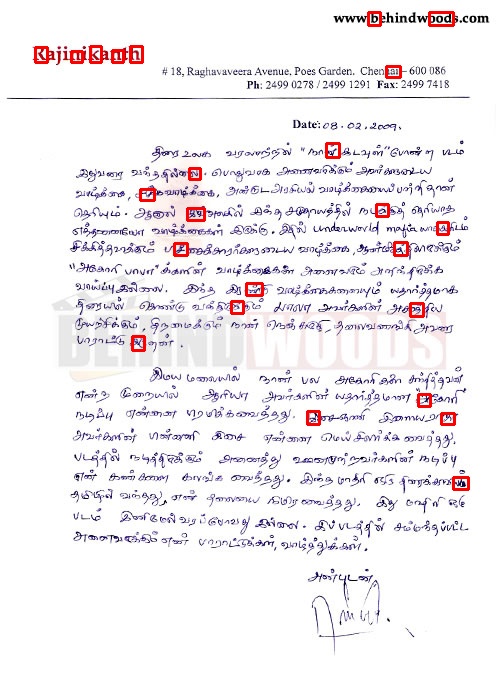 www.behindwoods.com
Rajinikanth
# 18, Raghavaveera Avenue, Poes Garden, Chennai – 600 086
Ph: 2499 0278 / 2499 1291 Fax: 2499 7418
Date: 08.02.2009.
திரை உலக வரலாற்றில் "நான் கடவுள்" போன்ற படம்
இதுவரை வந்ததில்லை. பொதுவாக அனைவருக்கும் அவர்களுடைய
வாழ்க்கை, வாழ்க்கை, அண்டை அரசியல் வாழ்க்கையைப் பற்றி தான்
தெரியும். ஆனால் உலகில் இந்த சமுதாயத்தில் நமக்குத் தெரியாத
எத்தனையோ வாழ்க்கைகள் இருக்கு. இதில் underworld
சிக்கித்தவிக்கும் பிச்சைக்காரர்களுடைய வாழ்க்கை,
"அகோரி பாபா"க்களின் வாழ்க்கைகள் அனைவரும் அறிந்திருக்க
வாய்ப்பு இல்லை. இந்த இரு வாழ்க்கைகளையும் யதார்த்தமாக
திரையில் கொண்டு வந்திருக்கும் பாலா அவர்களின் அசாத்திய
முயற்சிக்கும், திறமைக்கும் நான் நெகிழ்ந்து, தலைவணங்கி அவரை
பாராட்டுகிறேன்.
இமய மலையில் நான் பல அகோரிகளை சந்தித்தவன்
என்ற முறையில் ஆர்யா அவர்களின் யதார்த்தமான "அகோரி"
நடிப்பு என்னை பிரமிக்க வைத்தது. இசைஞானி இளையராஜா
அவர்களின் பின்னணி இசை என்னை மெய் சிலிர்க்க வைத்தது.
படத்தில் நடித்திருக்கும் அனைத்து நடிப்பு
என் கண்களை கலங்க வைத்தது. இந்த மாதிரி ஒரு திரைக்காவியம்
தமிழில் வந்தது, என் தலையை நிமிர வைத்தது. இது மாதிரி ஒரு
படம் இனிமேல் வரப்போவது இல்லை. இப்படத்தில் சம்மந்தப்பட்ட
அனைவருக்கும் என் பாராட்டுக்கள், வாழ்த்துக்கள்.
அன்புடன்,
BEHINDWOODS